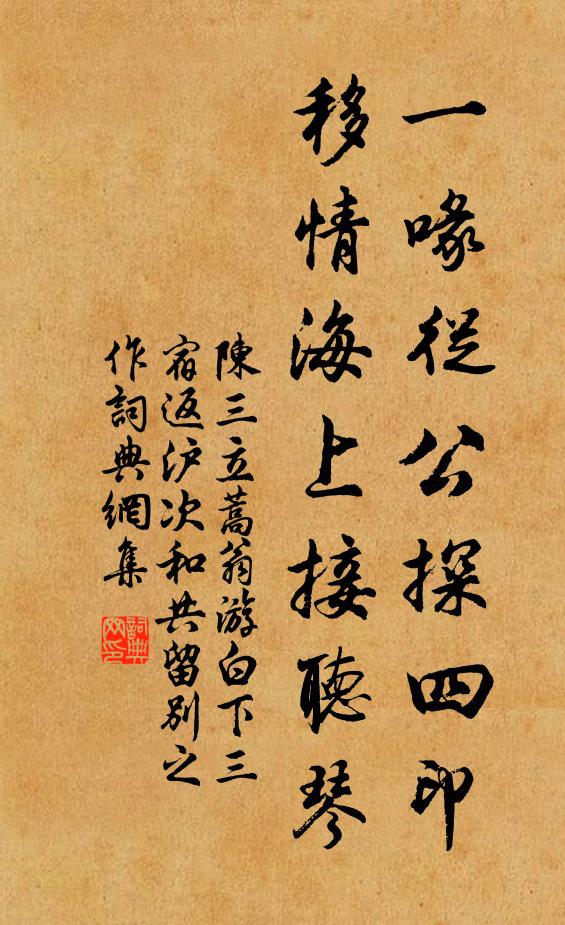 一喙從公探四印
移情海上接聽琴
陳三立蒿翁游白下三
宿返沪次和共留别之
作詞典網集
詞典
网印